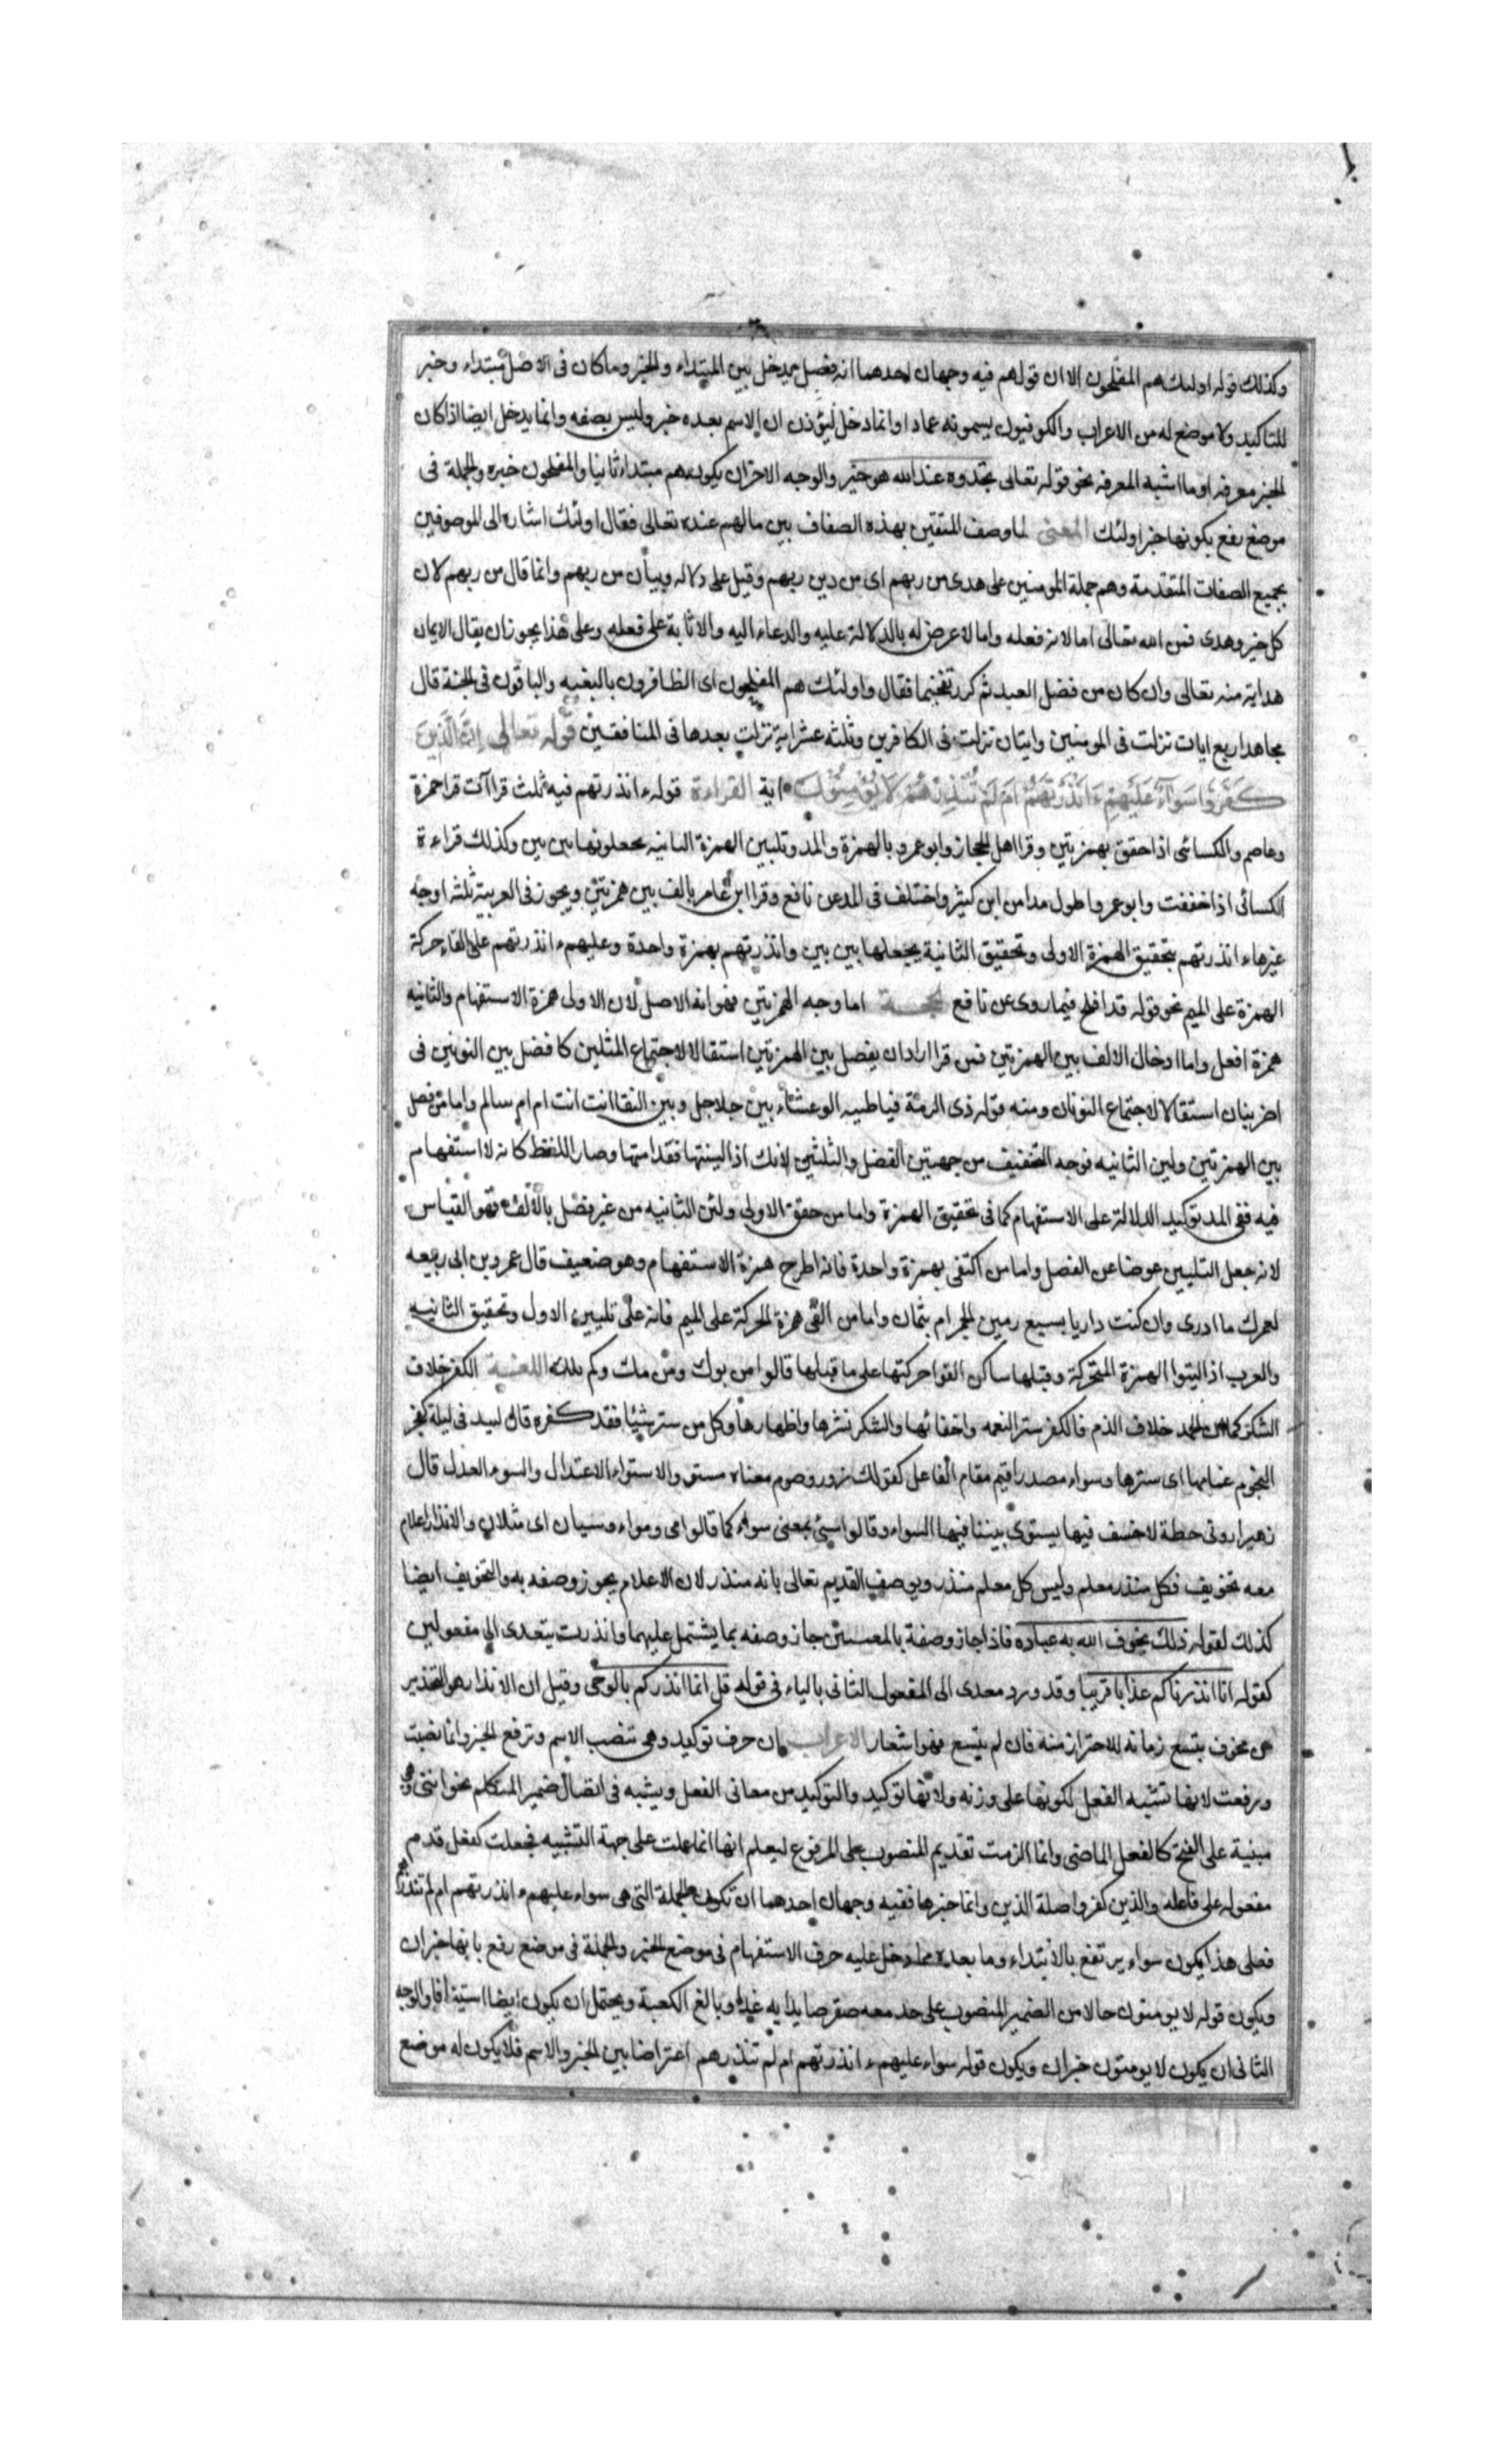 وكذلك قوله اولئك هم المفلحون الا ان قولهم فيه وجهان احدهما انه فصل يدخل بين المبتداء والخبر وما كان فى الاصل مبتداء وخبر
للتاكيد ولا موضع له من الاعراب والكوفيون يسمونه عمادا وانما دخل ليؤذن ان الاسم بعده خبر وليس بصفه وانما يدخل ايضا اذا كان
الخبر معرفه او ما اشبه المعرفه نحو قوله تعالى تجدوه عند الله هو خير والوجه الاخر ان يكون هم مبتداء ثانيا والمفلحون خبره والجملة فى
موضع رفع بكونها خبر اولئك المعنى لما وصف المتقين بهذه الصفات بين مالهم عنده تعالى فقال اولئك اشاره الى الموصوفين
بجميع الصفات المتقدمة وهم جملة المومنين على هدى من ربهم اى من دين ربهم وقيل على دلاله وبيان من ربهم وانما قال من ربهم لان
كل خير وهدى فمن الله تعالى اما لانه فعله واما لا عرض له بالدلالة عليه والدعاء اليه والاثابة على فعله وعلى هذا يجوز ان يقال الايمان
هداية منه تعالى وان كان من فضل العبد ثم كرر تفخيما فقال واولئك هم المفلحون اى الظافرون بالبغيه والباقون فى الجنة قال
مجاهد اربع ايات نزلت فى المومنين وايتان نزلت فى الكافرين وثلثه عشر اية نزلت بعدها فى المنافقين قوله تعالى ان الذين
كفروا سواء عليهم ءانذرتهم ام لم تنذرهم لا يؤمنون اية القراءة قوله ءانذرتهم فيه ثلث قراآت قرا حمزة
وعاصم والكسائى اذا حقق بهمزتين وقرا اهل الحجاز وابو عمرو بالهمزة والمد وتليين الهمزة الثانيه يجعلونها بين بين وكذلك قراءة
الكسائى اذا خففت وابو عمرو اطول مدا من ابن كثير واختلف فى المد عن نافع وقرا ابن عامر بالف بين همزتين ويجوز فى العربية ثلثه اوجه
غيرها ءانذرتهم بتحقيق الهمزة الاولى وتحقيق الثانية يجعلها بين بين وانذرتهم بهمزة واحدة وعليهم ءانذرتهم على القاء حركة
الهمزة على الميم نحو قوله قد افلح فيما روى عن نافع اما وجه الهمزتين فهو انه الاصل لان الاولى همزة الاستفهام والثانيه
همزة افعل واما ادخال الالف بين الهمزتين فمن قرا اراد ان يفصل بين الهمزتين استقالا لاجتماع المثلين كما فصل بين النونين فى
اضربنان استقالا لاجتماع النونان ومنه قوله ذى الرمة فيا ظبيه الوعشاء بين جلاجل وبين النقا انت انت ام ام سالم واما من فصل
بين الهمزتين ولين الثانيه فوجه التخفيف من جهتين الفصل والتليين لانك اذا لينتها فقد امتها وصار اللفظ كانه لا استفهام
فيه ففى المد توكيد الدلالة على الاستفهام كما فى تحقيق الهمزة واما من حقق الاولى ولين الثانيه من غير فصل بالالف فهو القياس
لانه جعل التليين عوضا عن الفصل واما من اكتفى بهمزة واحدة فانه اطرح همزة الاستفهام وهو ضعيف قال عمرو بن ابى ربيعه
لعمرك ما ادرى وان كنت داريا بسبع رمين الجمر ام بثمان واما من القى همزة الحركة على الميم فانه على تليين الاول وتحقيق الثانيه
والعرب اذا لينوا الهمزة المتحركة وقبلها ساكن القوا حركتها على ما قبلها قالوا من بوك ومن مك وكم بلك اللغة الكفر خلاف
الشكر كما ان الحمد خلاف الذم فالكفر ستر النعمه واخفائها والشكر نشرها واظهارها وكل من ستر شيئا فقد كفره قال لبيد فى ليلة كفر
النجوم غمامها اى سترها وسواء مصدر اقيم مقام الفاعل كقولك زور وصوم معناه مستو والاستواء الاعتدال والسوء العدل قال
زهير ارونى خطة لا خسف فيها يستوى بيننا فيها السواء وقالوا سيّ بمعنى سواء كما قالوا قى وقواء وسيان اى مثلان والانذار اعلام
معه تخويف فكل منذر معلم وليس كل معلم منذر ويوصف القديم تعالى بانه منذر لان الاعلام يجوز وصفه به والتخويف ايضا
كذلك لقوله ذلك يخوف الله به عباده فاذا جاز وصفة بالمعنيين جاز وصفه بما يشتمل عليهما وانذرت يتعدى الى مفعولين
كقوله انا انذرناكم عذابا قريبا وقد ورد معدى الى المفعول الثانى بالباء فى قوله قل انما انذركم بالوحى وقيل ان الانذار هو التحذير
من مخوف يتسع زمانه للاحتراز منه فان لم يتسع فهو اشعار الاعراب ان حرف توكيد وهى تنصب الاسم وترفع الخبر وانما نصبت
ورفعت لانها تشبه الفعل لكونها على وزنه ولانها توكيد والتوكيد من معانى الفعل ويشبه فى اتصال ضمير المتكلم نحو اننى وهى
مبنية على الفتح كالفعل الماضى وانما الزمت تقديم المنصوب على المرفوع ليعلم انها انما عملت على جهة التشبيه فجعلت كفعل قدم
مفعوله على فاعله والذين كفروا صلة الذين وانما خبرها ففيه وجهان احدهما ان تكون الجملة التى هى سواء عليهم ءانذرتهم ام لم تنذرهم
فعلى هذا يكون سواء يرتفع بالابتداء وما بعده مما دخل عليه حرف الاستفهام فى موضع الخبر والجملة فى موضع رفع بانها خبر ان
ويكون قوله لا يومنون حالا من الضمير المنصوب على حد معه صقر صايدا به غدا وبالغ الكعبة ويحتمل ان يكون ايضا استينافا والوجه
الثانى ان يكون لا يومنون خبر ان ويكون قوله سواء عليهم ءانذرتهم ام لم تنذرهم اعتراضا بين الخبر والاسم فلا يكون له موضع